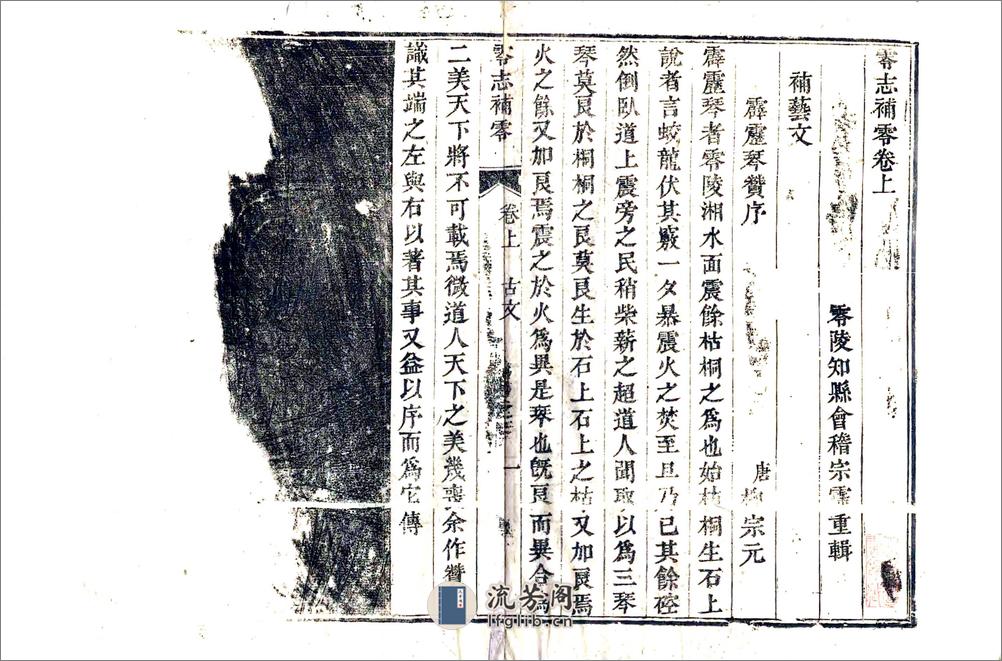 零志補零卷上
零陵知縣會稽宗霈重輯
補藝文
霹靂琴贊序
唐柳宗元
霹靂琴者零陵湘水面震餘枯桐之爲也始枯桐生石上
說者言蛟龍伏其竅一夕暴震火之焚至旦乃已其餘硿
然倒臥道上震旁之民稍柴薪之超道人聞取以爲三琴
琴莫良於桐桐之良莫良生於石上石上之枯又加良焉
火之餘又加良焉震之於火爲異是琴也旣良而異合爲
零志補零
卷上
古文
一
二美天下將不可載焉微道人天下之美幾喪余作贊
識其端之左與右以著其事又益以序而爲它傳
流芳阁
lfglib.cn